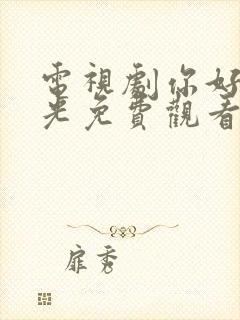 電視劇你好
光免費觀看
扉秀